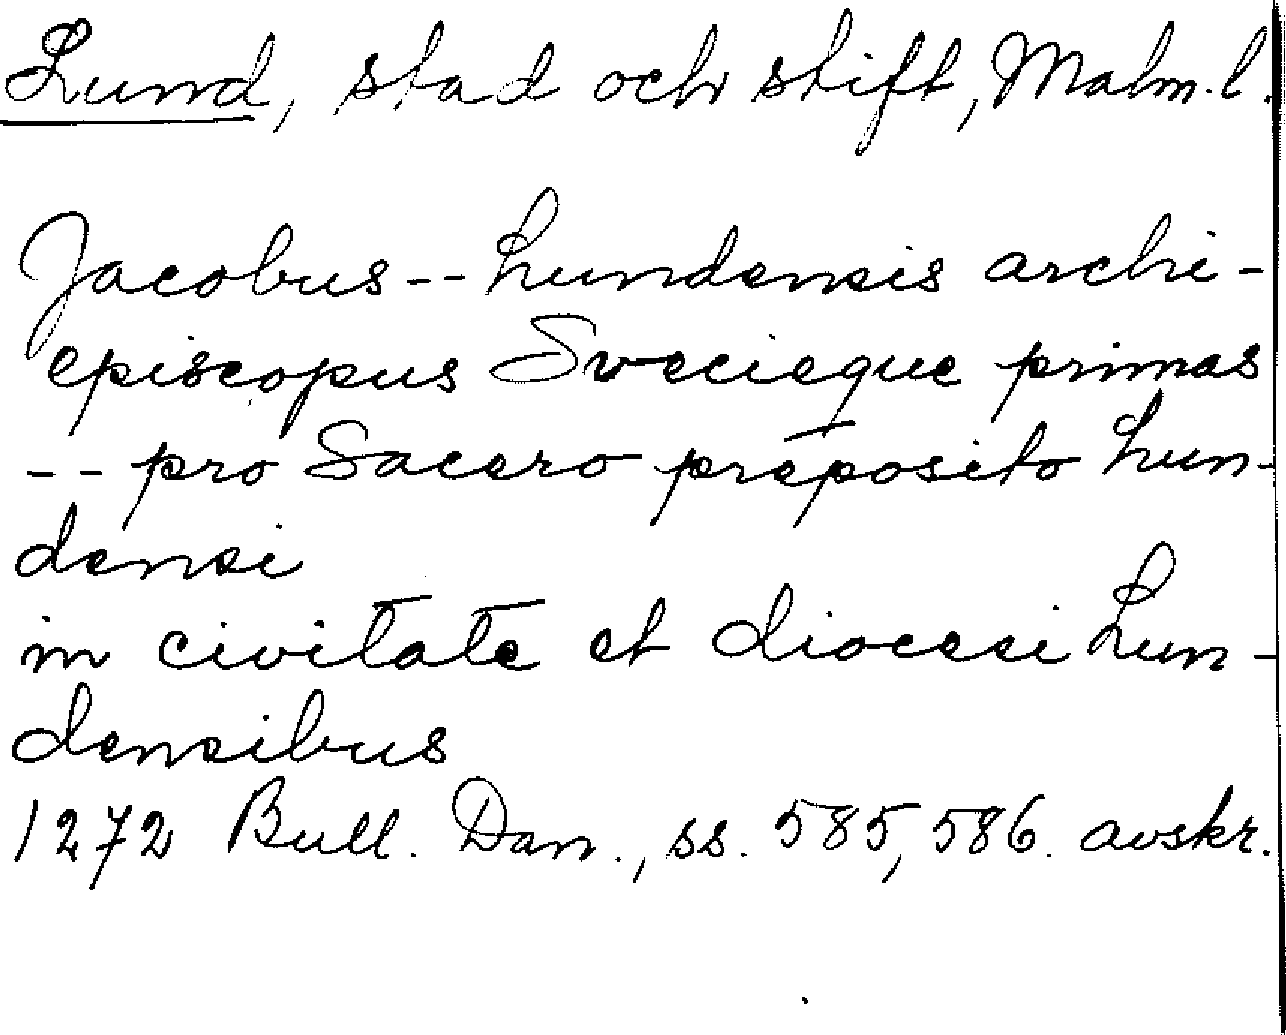 Lund, stad och stift, Malm.l.
Jacobus -- Lundensis archi-
episcopus Svecieque primas
-- pro Sacero preposito Lun-
densi
in civitate et diocesi Lun-
densibus
1272 Bull. Dan., ss. 585, 586. avskr.